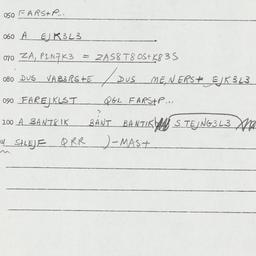 050 FARS+P..
060 A EJK3L3
070 ZA, P1N7K3 = ZAS8T8OS+K83S
080 DUS VAB3RG+E / DUS ME,NERS+ EJK3L3
090 FAREJKLST QGL FARS+P...
100 A BANT81K BANT BANTIK STEJNG3L3
S+LEJF QRR )-MAS+